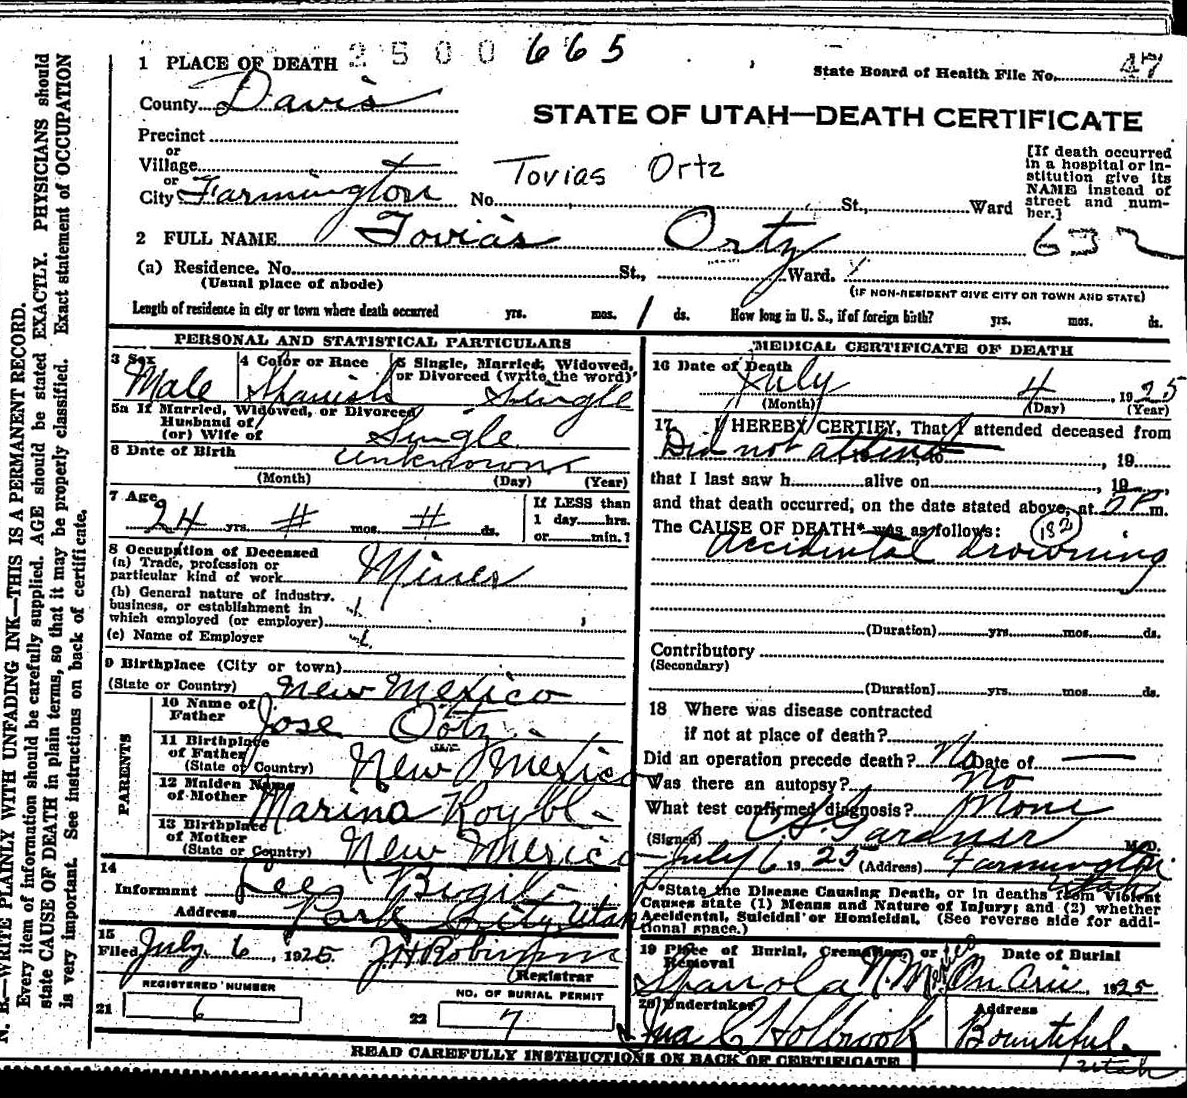 1 PLACE OF DEATH 2500 665
State Board of Health File No. 47
County Davis
STATE OF UTAH—DEATH CERTIFICATE
Precinct
or
Village
or
City Farmington No. St., Ward
Tovias Ortz
[If death occurred
in a hospital or in-
stitution give its
NAME instead of
street and num-
ber.]
2 FULL NAME Tovias Ortz 632
(a) Residence. No. St., Ward.
(Usual place of abode)
(IF NON-RESIDENT GIVE CITY OR TOWN AND STATE)
Length of residence in city or town where death occurred yrs. mos. 1 ds. How long in U. S., if of foreign birth? yrs. mos. ds.
PERSONAL AND STATISTICAL PARTICULARS
3 Sex
Male
4 Color or Race
Spanish
5 Single, Married, Widowed,
or Divorced (write the word)
Single
5a If Married, Widowed, or Divorced
Husband of
(or) Wife of Single
6 Date of Birth unknown
(Month) (Day) (Year)
7 Age
24 yrs. mos. ds.
If LESS than
1 day......hrs.
or......min.?
8 Occupation of Deceased
(a) Trade, profession or
particular kind of work Miner
(b) General nature of industry.
business, or establishment in
which employed (or employer)
(c) Name of Employer
9 Birthplace (City or town)
(State or Country) New Mexico
PARENTS
10 Name of
Father Jose Ortz
11 Birthplace
of Father
(State or Country) New Mexico
12 Maiden Name
of Mother Marina Roybl
13 Birthplace
of Mother
(State or Country) New Mexico
14
Informant Lee
Address Park City Utah
15
Filed July 6, 1925 J H Robinson
Registrar
REGISTERED NUMBER
21 6
NO. OF BURIAL PERMIT
22 7
MEDICAL CERTIFICATE OF DEATH
16 Date of Death
July 4, 1925
(Month) (Day) (Year)
17. I HEREBY CERTIFY, That I attended deceased from
Did not attend, to , 19
that I last saw h alive on , 19
and that death occurred, on the date stated above, at 2 P. m.
The CAUSE OF DEATH* was as follows: 182
accidental drowning
(Duration) yrs. mos. ds.
Contributory
(Secondary)
(Duration) yrs. mos. ds.
18 Where was disease contracted
if not at place of death?
Did an operation precede death? No Date of —
Was there an autopsy? No
What test confirmed diagnosis? None
(Signed) Gardner M.D.
July 6 1925 (Address) Farmington
Utah
*State the Disease Causing Death, or in deaths from Violent
Causes state (1) Means and Nature of Injury; and (2) whether
Accidental, Suicidal or Homicidal. (See reverse side for addi-
tional space.)
19 Place of Burial, Cremation, or
Removal
Spanola N. Mexico
Date of Burial
1925
20 Undertaker
Holbrook
Address
Bountiful
Utah
READ CAREFULLY INSTRUCTIONS ON BACK OF CERTIFICATE
N. B.—WRITE PLAINLY WITH UNFADING INK—THIS IS A PERMANENT RECORD.
Every item of information should be carefully supplied. AGE should be stated EXACTLY. PHYSICIANS should
state CAUSE OF DEATH in plain terms, so that it may be properly classified. Exact statement of OCCUPATION
is very important. See instructions on back of certificate.